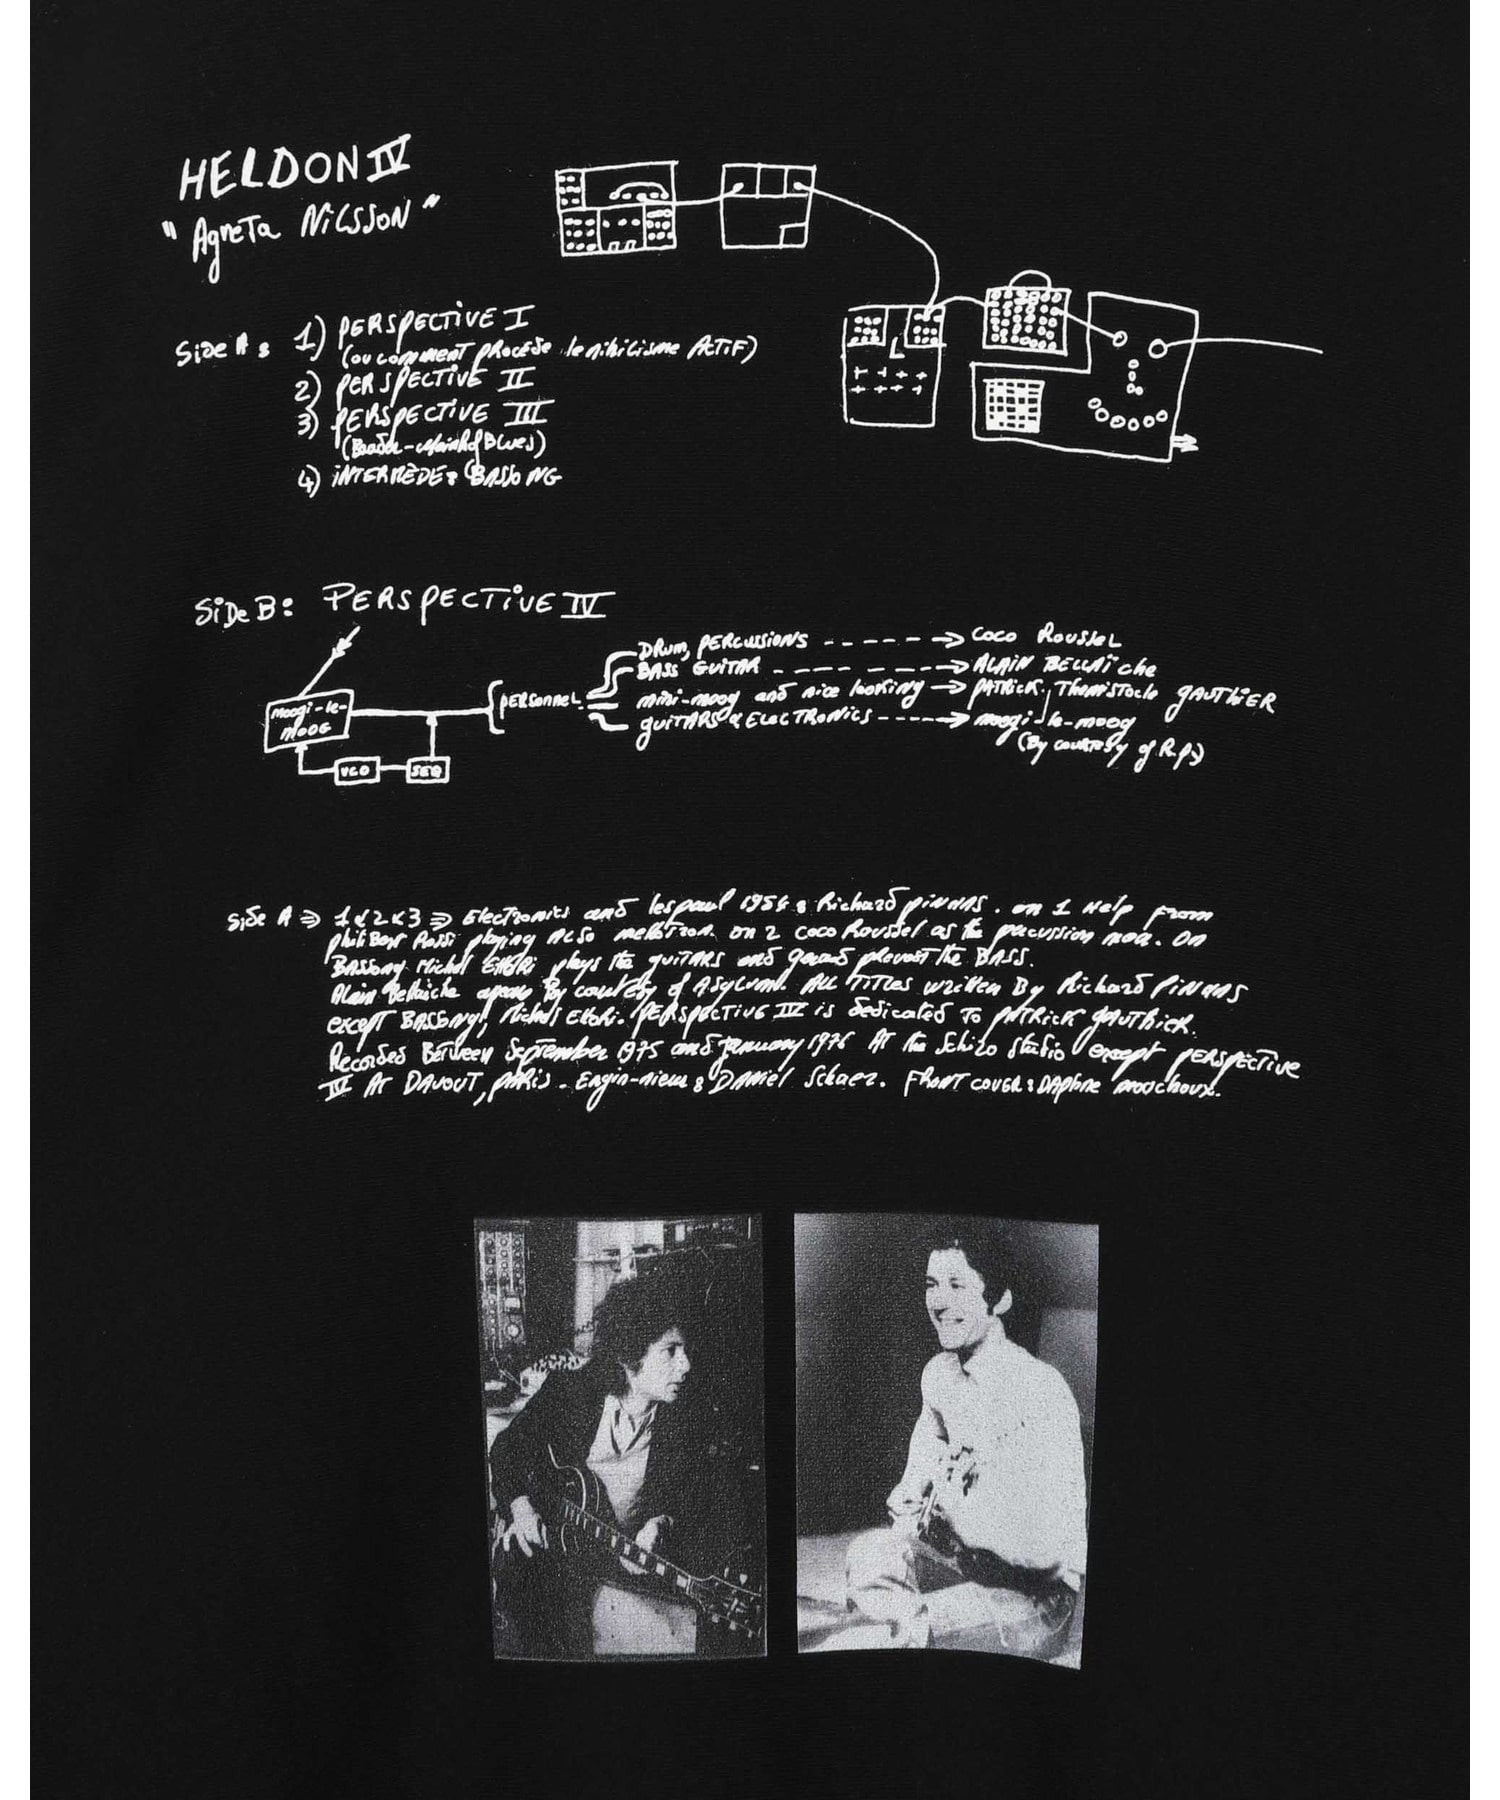 HELDON IV
"Agneta Nilsson"
Side A: 1) PERSPECTIVE I
(ou comment procède le nihilisme ACTIF)
2) PERSPECTIVE II
3) PERSPECTIVE III
(Baader-Meinhof Blues)
4) INTERMÈDE: BASSONG
Side B: PERSPECTIVE IV
DRUM, PERCUSSIONS -----> COCO ROUSSEL
BASS GUITAR -----> ALAIN BELLAÏCHE
PERSONNEL
mini-moog and nice looking -> PATRICK Themistocle GAUTHIER
GUITARS & ELECTRONICS ----> moogi-le-moog
(By courtesy of R.P.)
moogi-le-
MOOG
VCO SEQ
Side A => 1&2&3 => Electronics and lespaul 1954: Richard PINHAS. on 1 Help From
philibert Rossi playing ALSO mellotron. on 2 coco Roussel as the pecussion man. On
BASSong Michel Ettori plays the guitars and gerard prevost the BASS.
Alain Bellaiche appears By courtesy of Asylum. All Titles written By Richard PINHAS
except BASSong, Michel Ettori. PERSPECTIVE IV is dedicated To PATRICK GAUTHIER.
Recorded Between September 1975 and january 1976 At the Schizo studio except PERSPECTIVE
IV At DAVOUT, PARIS. Engin-nieur: DANIEL Schaer. FRONT COVER: DAphne mouchoux.